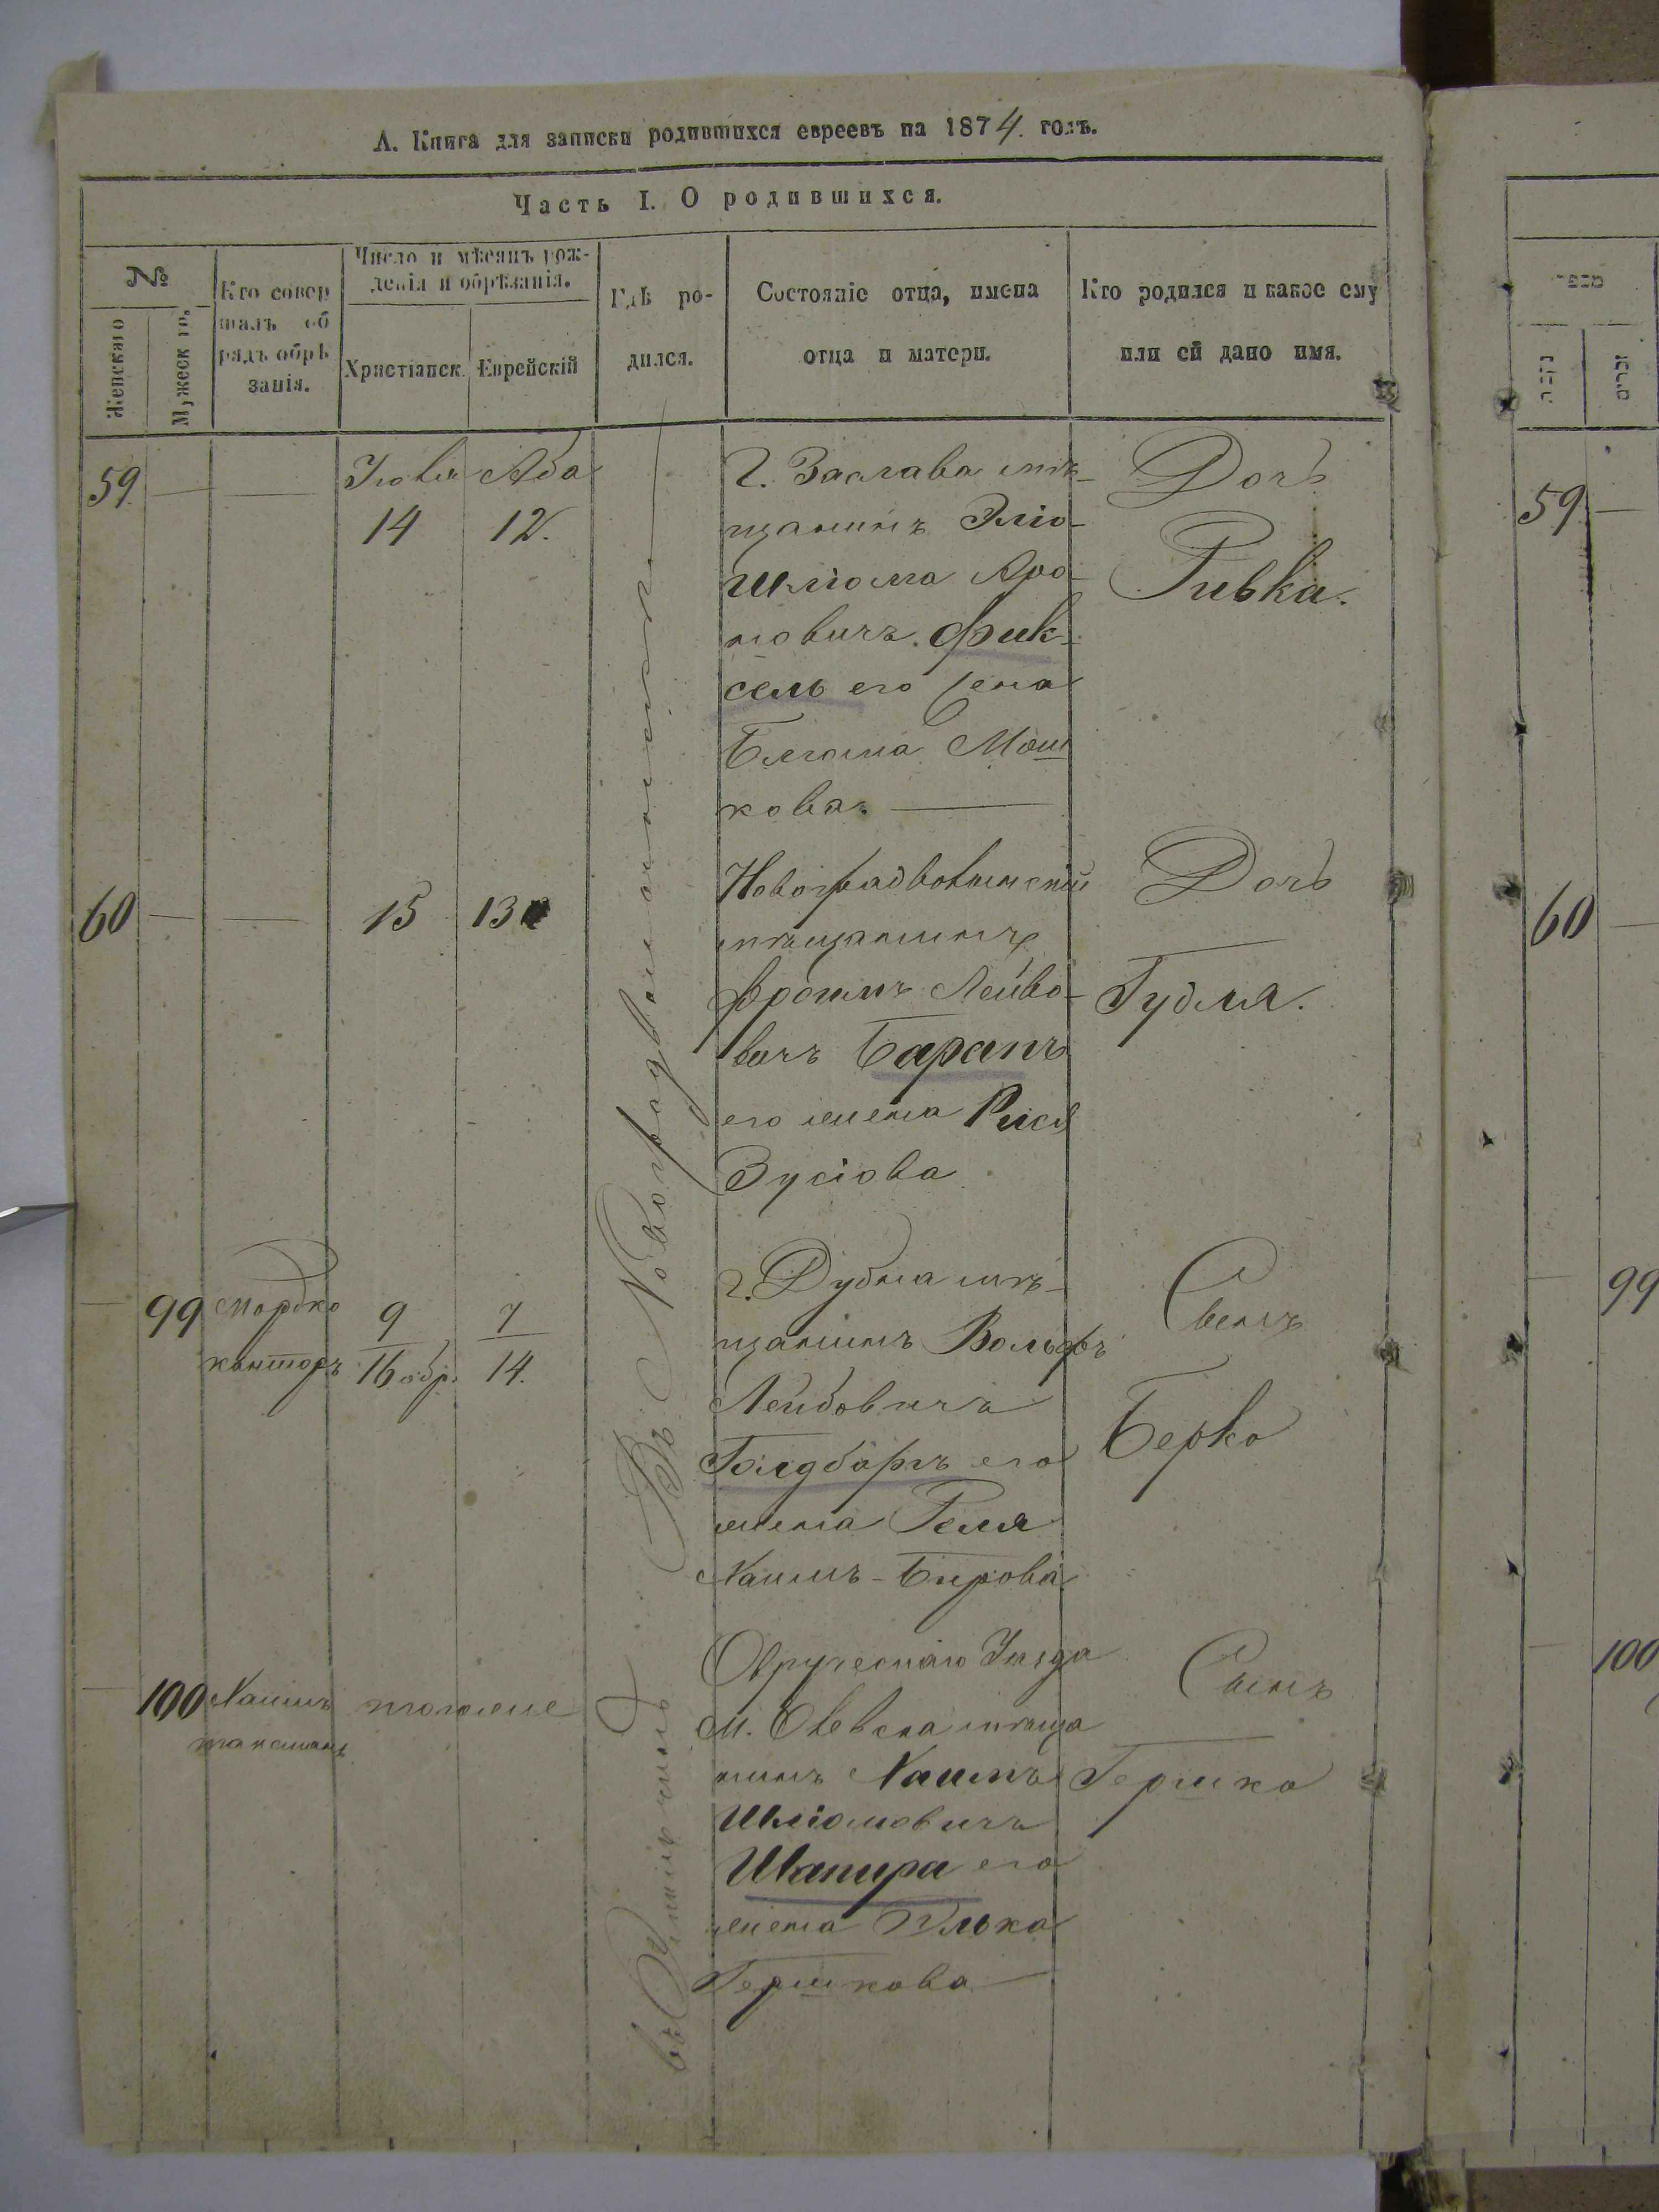 А. Книга для записки родившихся евреевъ на 1874 годъ.
Часть I. О родившихся.
№
Женскаго
Мужеского
Кто совершалъ обрядъ обрѣзанія.
Число и мѣсяцъ рожденія и обрѣзанія.
Христіанск.
Еврейскій
Гдѣ родился.
Состояніе отца, имена
отца и матери.
Кто родился и какое ему
или ей дано имя.
59
Іюля
14
Аба
12.
Г. Заслава мѣ-
щанинъ Эліо-
Шліома Аро-
новичъ Фик-
сель его жена
Блюма Мош
кова.
Дочь
Ривка.
60
15
13
Новоградволынскій
мѣщанинъ
Фроимъ Лейбо-
вичъ Баранъ
его жена Рися
Зусіова
Дочь
Гудля.
99
Мордко
канторъ
9
16 обр.
7
14.
г. Дубна мѣ-
щанинъ Вольфъ
Лейбовичъ
Голдбаргъ его
жена Реля
Хаимъ-Берова
Сынъ
Берко
100
Хаимъ
тоже
Овручскаго Уѣзда
м. Олевска мѣща
нинъ Хаимъ
Шліомовичъ
Шапира его
жена
Гершкова
Сынъ
Гершко
Въ Новоградволынскѣ
59
60
99
100